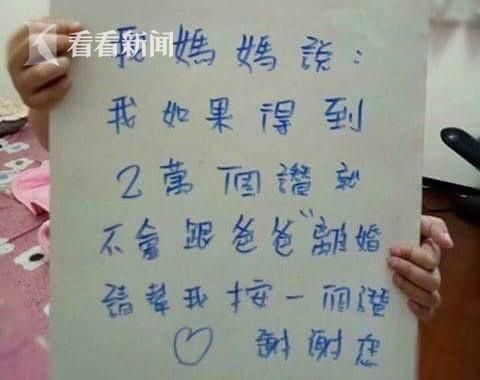 看看新闻
我媽媽說：
我如果得到
2萬個讚就
不會跟爸爸"離婚
請幫我按一個讚
♡ 謝謝您